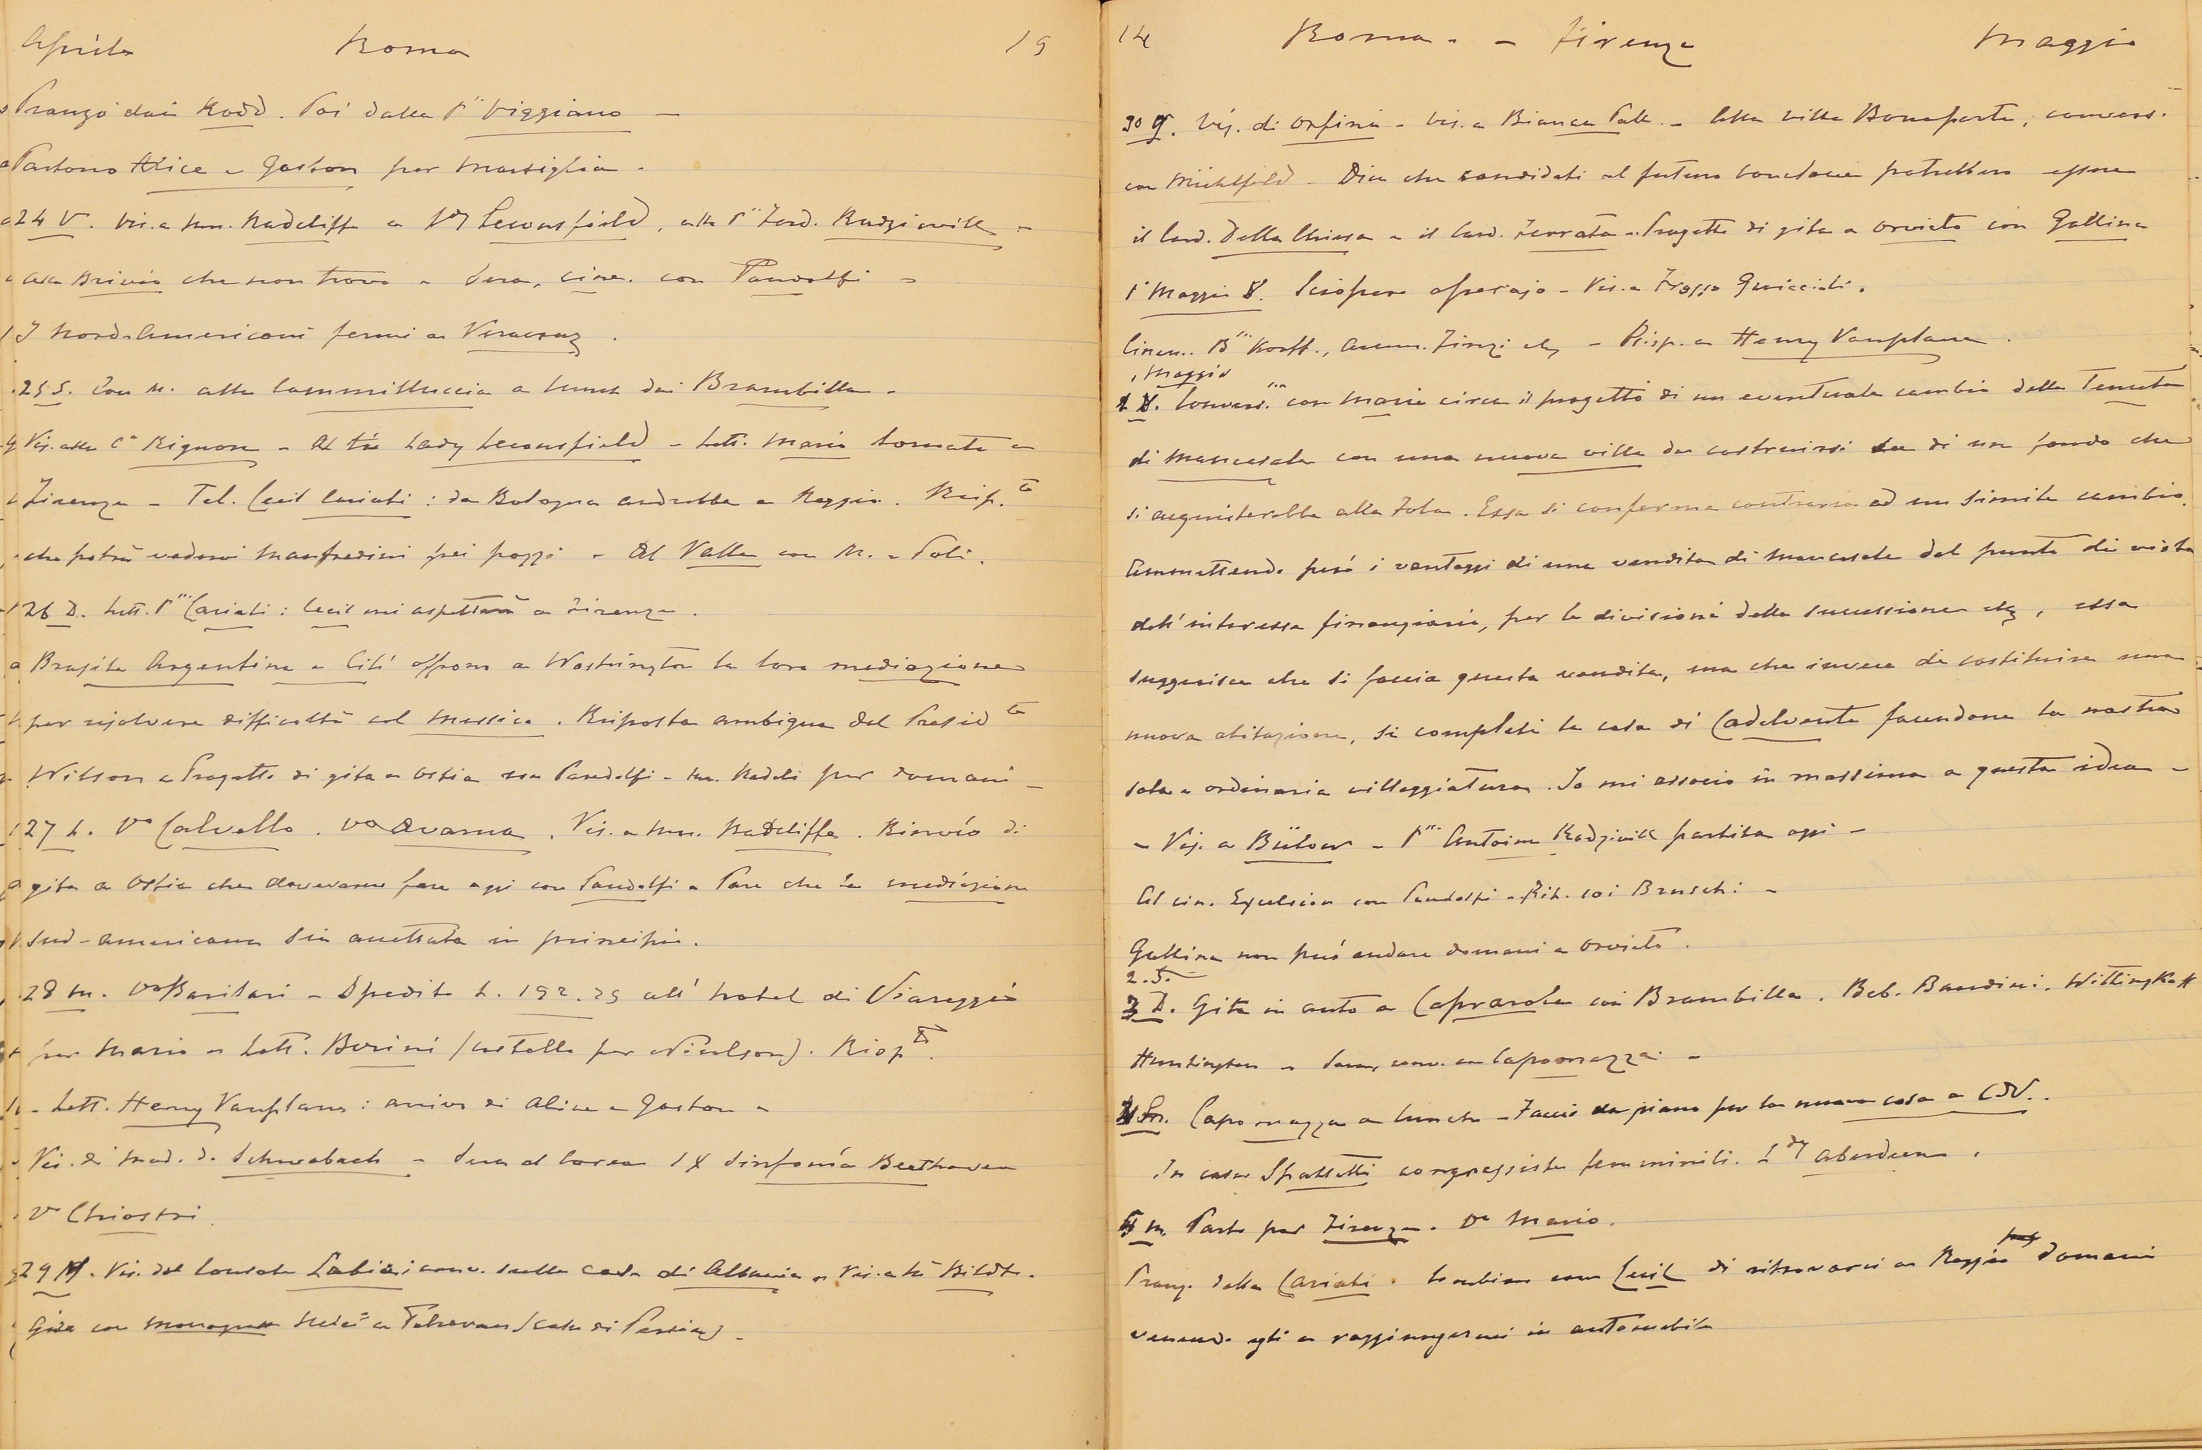 Aprile Roma 19
Pranzo dai Rodd. Poi dalla P.ssa Viggiano —
Partono Alice e Gaston per Marsiglia.
24 V. Vis. a Mrs. Radcliffe a Ldy Leconsfield, alla P.ssa Ferd. Radziwill —
casa Brivio che non trovo — Sera, cine. con Pandolfi —
I Nord-Americani fermi a Veracruz.
25 S. Con M. alla Cammilluccia a lunch dai Brambilla —
Vis. alla C.a Rignon — Al thé Lady Leconsfield — Lett. Mario tornata a
Firenze — Tel. Cecil Cariati: da Bologna andrebbe a Reggio. Risp.to
che potrà vedervi Manfredini pei pozzi — Al Valle con M. e Poli.
26 D. Lett. P.ssa Cariati: Cecil mi aspetterà a Firenze.
Brasile Argentina e Cili offrono a Washington la loro mediazione
per risolvere difficoltà col Messico. Risposta ambigua del Presid.te
Wilson — Progetto di gita a Ostia con Pandolfi — Mrs. Radcli per domani —
27 L. Va Calvello. Va Avarna. Vis. a Mrs. Radcliffe. Rinvio di
gita a Ostia che dovevamo fare oggi con Pandolfi — Pare che la mediazione
Sud-americana sia accettata in principio.
28 M. Va Barilari — Spedito L. 192.25 all'hotel di Viareggio
per Mario — Lett. Borini (castello per Nicolson). Risp.to.
— Lett. Henry Vanplane: arrivo di Alice e Gaston —
Vis. di Mad. d. Schwabach — Sera al Corea IX Sinfonia Beethoven
Va Chiostri.
29 M. Vis. del Console Labia: conv. sulle cose di Albania — Vis. a Bildt.
Gita con a Teheran (cose di Persia).
14 Roma — Firenze Maggio
30 G. Vis. di Orfini — Vis. a Bianca Pall. — Alla villa Bonaparte, convers.
con Mühlfeld — Dice che candidati al futuro conclave potrebbero essere
il Card. Della Chiesa e il Card. Ferrata — Progetto di gita a Orvieto con Gallina
1° Maggio V. Sciopero operajo — Vis. a Guiccioli.
Cinem. B.ssa Korff., etc — Risp. a Henry Vanplane.
1 Maggio
V. Convers.ne con Maria circa il progetto di un eventuale cambio della Tenuta
di Mancasale con una nuova villa da costruirsi su di un fondo che
si acquisterebbe alla Fola. Essa si conferma contraria ad un simile cambio.
Ammettendo però i vantaggi di una vendita di Mancasale dal punto di vista
dell'interesse finanziario, per le divisioni della successione etc, essa
suggerisce che si faccia questa vendita, ma che invece di costituire una
nuova abitazione, si completi la casa di Cadelvento facendone la nostra
sola e ordinaria villeggiatura. Io mi associo in massima a questa idea —
— Vis. a Bülow — P.ssa Antoine Radziwill partita oggi —
Al cin. Excelsior con Pandolfi — Rit. coi Bruschi —
Gallina non può andare domani a Orvieto.
2. S. —
3 D. Gita in auto a Caprarola coi Brambilla. Beb. Bandini. Wittingkoff
Huntington — Sera, conv. con Capomazza —
Capomazza a lunch — Faccio un piano per la nuova casa a CDV..
In casa Spalletti congressiste femminili. Ldy Aberdeen.
M. Parto per Firenze. Da Mario.
Pranz. dalla Cariati. Combino con Cecil di ritrovarci a Reggio domani
venendo egli a raggiungermi in automobile